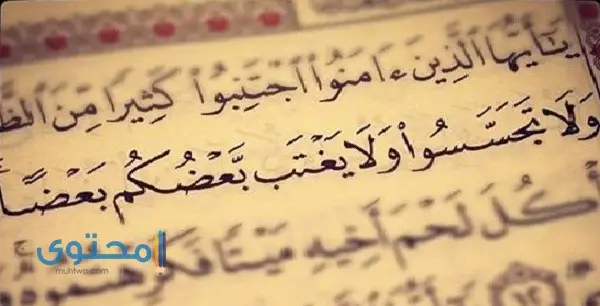 يَٰٓأَيُّهَا ٱلَّذِينَ ءَامَنُوا۟ ٱجْتَنِبُوا۟ كَثِيرًا مِّنَ ٱلظَّ
وَلَا تَجَسَّسُوا۟ وَلَا يَغْتَب بَّعْضُكُم بَعْضًا
أْكُلَ لَحْمَ أَخِيهِ مَيْتًا فَكَرِهْتُمُوهُ
محتوى
muhtwa.com